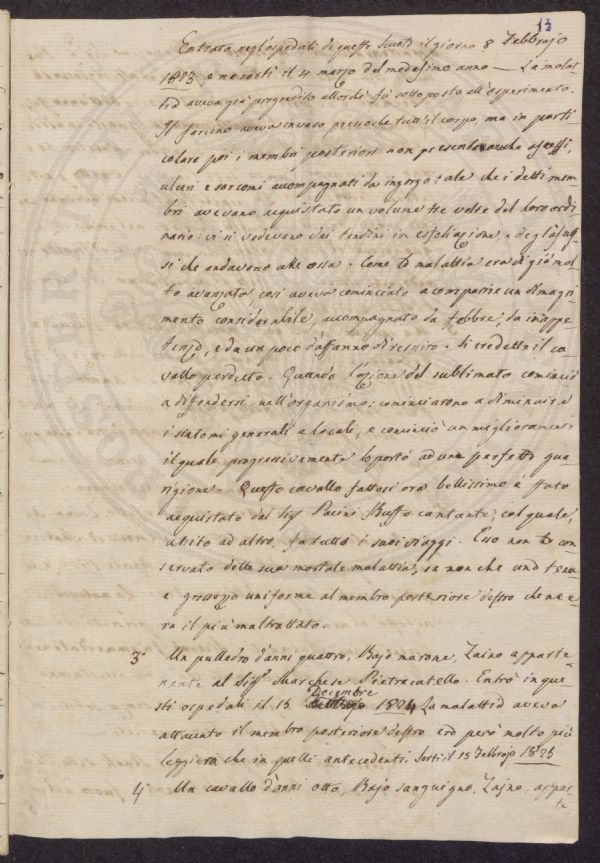 13
Entrato negl'ospedali di questa Scuola il giorno 8 Febbrajo
1823 e ne sortì il 4 marzo del medesimo anno — La malat-
tia aveva già progredito allorchè fù sotto posto all'esperimento.
Il farcino aveva invaso pressochè tutt'il corpo, ma in parti-
colare poi i membri posteriori non presentavano che ascessi,
ulceri e sarcomi accompagnati da ingorgo tale che i detti mem-
bri avevano acquistato un volume tre volte del loro ordi-
nario: vi si vedevano dei tendini in esfoliazione, e degl'ascess-
si che andavano alle ossa. Come la malattia era di già mol-
to avanzata così aveva cominciato a comparire un dimagri-
mento considerabile, accompagnato da febbre, da inappe-
tenza, e da un poco d'affanno di respiro. Si credette il ca-
vallo perduto. Quando l'azione del sublimato cominciò
a difondersi nell'organismo; cominciarono a diminuire
i sintomi generali e locali, e cominciò un miglioramento
il quale progressivamente lo portò ad una perfetta gua-
rigione. Questo cavallo fattosi ora bellissimo è stato
acquistato dal Sig Pacini Buffo cantante; col quale,
unito ad altro, fa tutti i suoi viaggi. Esso non ha con-
servato della sua mortale malattia, se non che una tenu-
e grossezza uniforme al membro posteriore destro che ne e-
ra il più maltrattato.
3° Un pulledro d'anni quattro, Bajo marone, Zaino apparte-
nente al Sigr Marchese Pietracatello. Entrò in que-
sti ospedali il 15 Decembre 1824 La malattia aveva
attaccato il membro posteriore destro era però molto più
leggiera che in quelli antecedenti. Sortì il 15 Febbrajo 1825
4° Un cavallo d'anni otto, Bajo sanguigno, Zajno, appar-
te